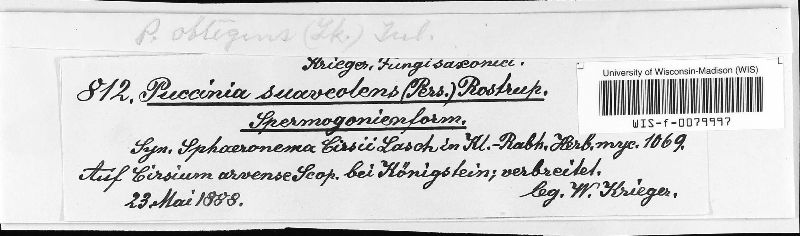 P. obtegens (Lk.) Tul.
Krieger, Fungi saxonici.
812. Puccinia suaveolens (Pers.) Rostrup.
Spermogonienform.
Syn. Sphaeronema Cirsii Lasch, in Kl.-Rabh. Herb. myc. 1069.
Auf Cirsium arvense Scop. bei Königstein; verbreitet.
23. Mai 1888. leg. W. Krieger.
University of Wisconsin-Madison (WIS)
WIS-f-0079997